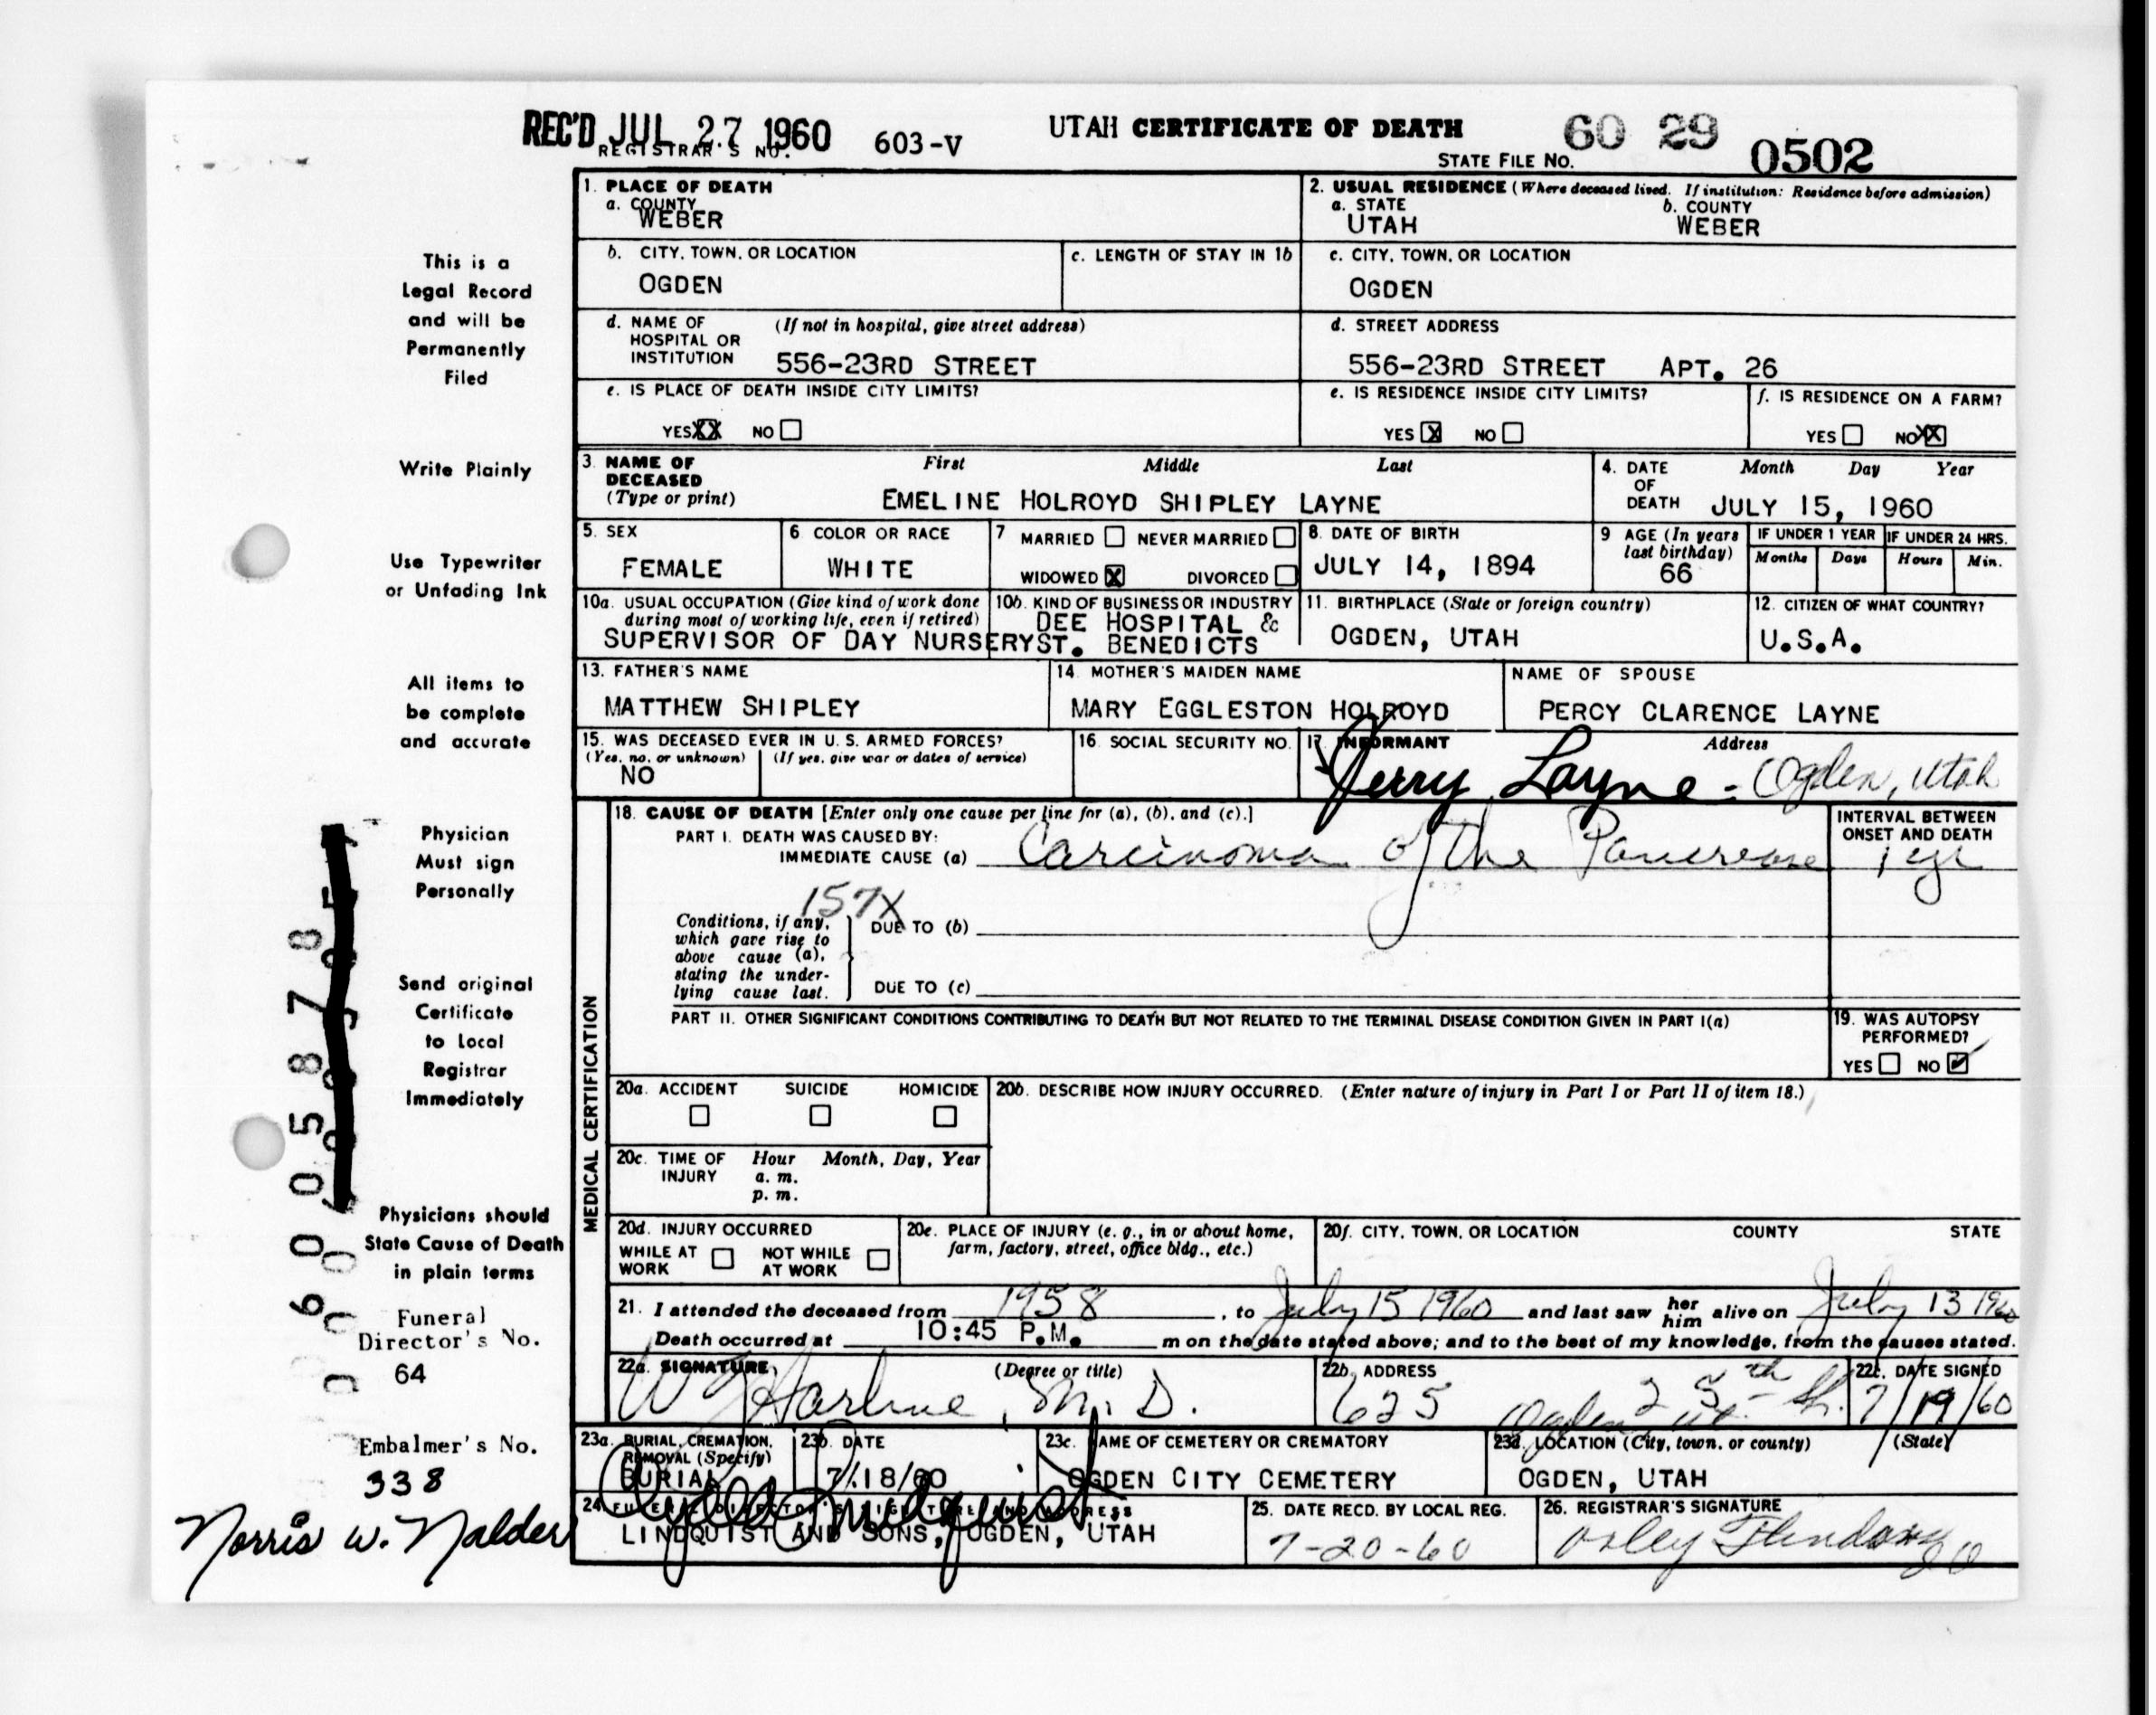 REC'D JUL 27 1960
REGISTRAR'S NO. 603-V
UTAH CERTIFICATE OF DEATH
STATE FILE NO. 60 29 0502
1. PLACE OF DEATH
a. COUNTY
WEBER
2. USUAL RESIDENCE (Where deceased lived. If institution: Residence before admission)
a. STATE b. COUNTY
UTAH WEBER
b. CITY, TOWN, OR LOCATION
OGDEN
c. LENGTH OF STAY IN 1b
c. CITY, TOWN, OR LOCATION
OGDEN
d. NAME OF HOSPITAL OR INSTITUTION (If not in hospital, give street address)
556-23RD STREET
d. STREET ADDRESS
556-23RD STREET APT. 26
e. IS PLACE OF DEATH INSIDE CITY LIMITS?
YES XX NO
e. IS RESIDENCE INSIDE CITY LIMITS?
YES X NO
f. IS RESIDENCE ON A FARM?
YES NO XX
3. NAME OF DECEASED (Type or print) First Middle Last
EMELINE HOLROYD SHIPLEY LAYNE
4. DATE OF DEATH Month Day Year
JULY 15, 1960
5. SEX
FEMALE
6 COLOR OR RACE
WHITE
7 MARRIED NEVER MARRIED
WIDOWED X DIVORCED
8. DATE OF BIRTH
JULY 14, 1894
9 AGE (In years last birthday)
66
IF UNDER 1 YEAR IF UNDER 24 HRS.
Months Days Hours Min.
10a. USUAL OCCUPATION (Give kind of work done during most of working life, even if retired)
SUPERVISOR OF DAY NURSERY
10b. KIND OF BUSINESS OR INDUSTRY
DEE HOSPITAL &
ST. BENEDICTS
11. BIRTHPLACE (State or foreign country)
OGDEN, UTAH
12. CITIZEN OF WHAT COUNTRY?
U.S.A.
13. FATHER'S NAME
MATTHEW SHIPLEY
14. MOTHER'S MAIDEN NAME
MARY EGGLESTON HOLROYD
NAME OF SPOUSE
PERCY CLARENCE LAYNE
15. WAS DECEASED EVER IN U. S. ARMED FORCES?
(Yes, no, or unknown) (If yes, give war or dates of service)
NO
16. SOCIAL SECURITY NO.
17. INFORMANT Address
Jerry Layne - Ogden, Utah
MEDICAL CERTIFICATION
18. CAUSE OF DEATH [Enter only one cause per line for (a), (b), and (c).]
PART I. DEATH WAS CAUSED BY:
IMMEDIATE CAUSE (a) Carcinoma of the Pancrease
INTERVAL BETWEEN ONSET AND DEATH
1 yr
157X
Conditions, if any, which gave rise to above cause (a), stating the underlying cause last.
DUE TO (b)
DUE TO (c)
PART II. OTHER SIGNIFICANT CONDITIONS CONTRIBUTING TO DEATH BUT NOT RELATED TO THE TERMINAL DISEASE CONDITION GIVEN IN PART I(a)
19. WAS AUTOPSY PERFORMED?
YES NO ✓
20a. ACCIDENT SUICIDE HOMICIDE
20b. DESCRIBE HOW INJURY OCCURRED. (Enter nature of injury in Part I or Part II of item 18.)
20c. TIME OF INJURY Hour Month, Day, Year
a. m.
p. m.
20d. INJURY OCCURRED
WHILE AT WORK NOT WHILE AT WORK
20e. PLACE OF INJURY (e. g., in or about home, farm, factory, street, office bldg., etc.)
20f. CITY, TOWN, OR LOCATION COUNTY STATE
21. I attended the deceased from 1958, to July 15 1960 and last saw her him alive on July 13 1960
Death occurred at 10:45 P.M. m on the date stated above; and to the best of my knowledge, from the causes stated.
22a. SIGNATURE (Degree or title)
M. D.
22b. ADDRESS
625 25th St.
Ogden Ut.
22c. DATE SIGNED
7/19/60
23a. BURIAL, CREMATION, REMOVAL (Specify)
BURIAL
23b. DATE
7/18/60
23c. NAME OF CEMETERY OR CREMATORY
OGDEN CITY CEMETERY
23d. LOCATION (City, town, or county) (State)
OGDEN, UTAH
24. FUNERAL DIRECTOR'S SIGNATURE AND ADDRESS
LINDQUIST AND SONS, OGDEN, UTAH
25. DATE RECD. BY LOCAL REG.
7-20-60
26. REGISTRAR'S SIGNATURE
This is a
Legal Record
and will be
Permanently
Filed
Write Plainly
Use Typewriter
or Unfading Ink
All items to
be complete
and accurate
Physician
Must sign
Personally
Send original
Certificate
to Local
Registrar
Immediately
Physicians should
State Cause of Death
in plain terms
Funeral
Director's No.
64
Embalmer's No.
338
Norris W. Nalder
06005878